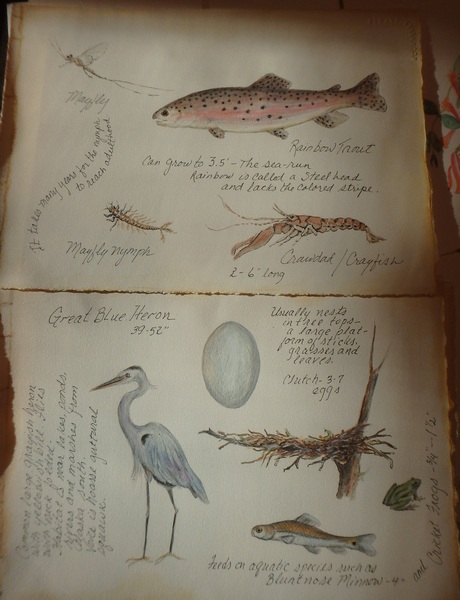 Mayfly
It takes many years for the nymph
to reach adulthood
Rainbow Trout
Can grow to 3.5' - The sea-run
Rainbow is called a Steelhead
and lacks the colored stripe.
Mayfly nymph
Crawdad / Crayfish
2-6" long
Great Blue Heron
39-52"
Usually nests
in tree tops-
a large plat-
form of sticks,
grasses and
leaves.
Clutch- 3-7
eggs
Common large grayish heron
with yellowish bill. Flies
with neck folded.
Habitat is near lakes, ponds,
rivers and marshes from
Alaska south.
Voice is hoarse guttural
squawk.
Feeds on aquatic species such as
Bluntnose Minnow-4"
and Cricket Frogs - 3/4 - 1 1/2"